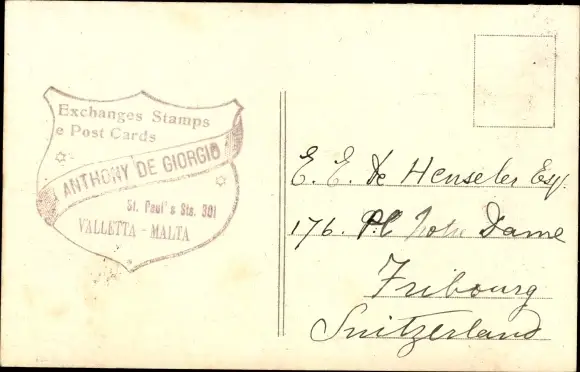 Exchanges Stamps
e Post Cards
ANTHONY DE GIORGIO
St. Paul's Sts. 301
VALLETTA - MALTA
E. E. De Henseler Esq.
176. Pl. Notre Dame
Fribourg
Switzerland